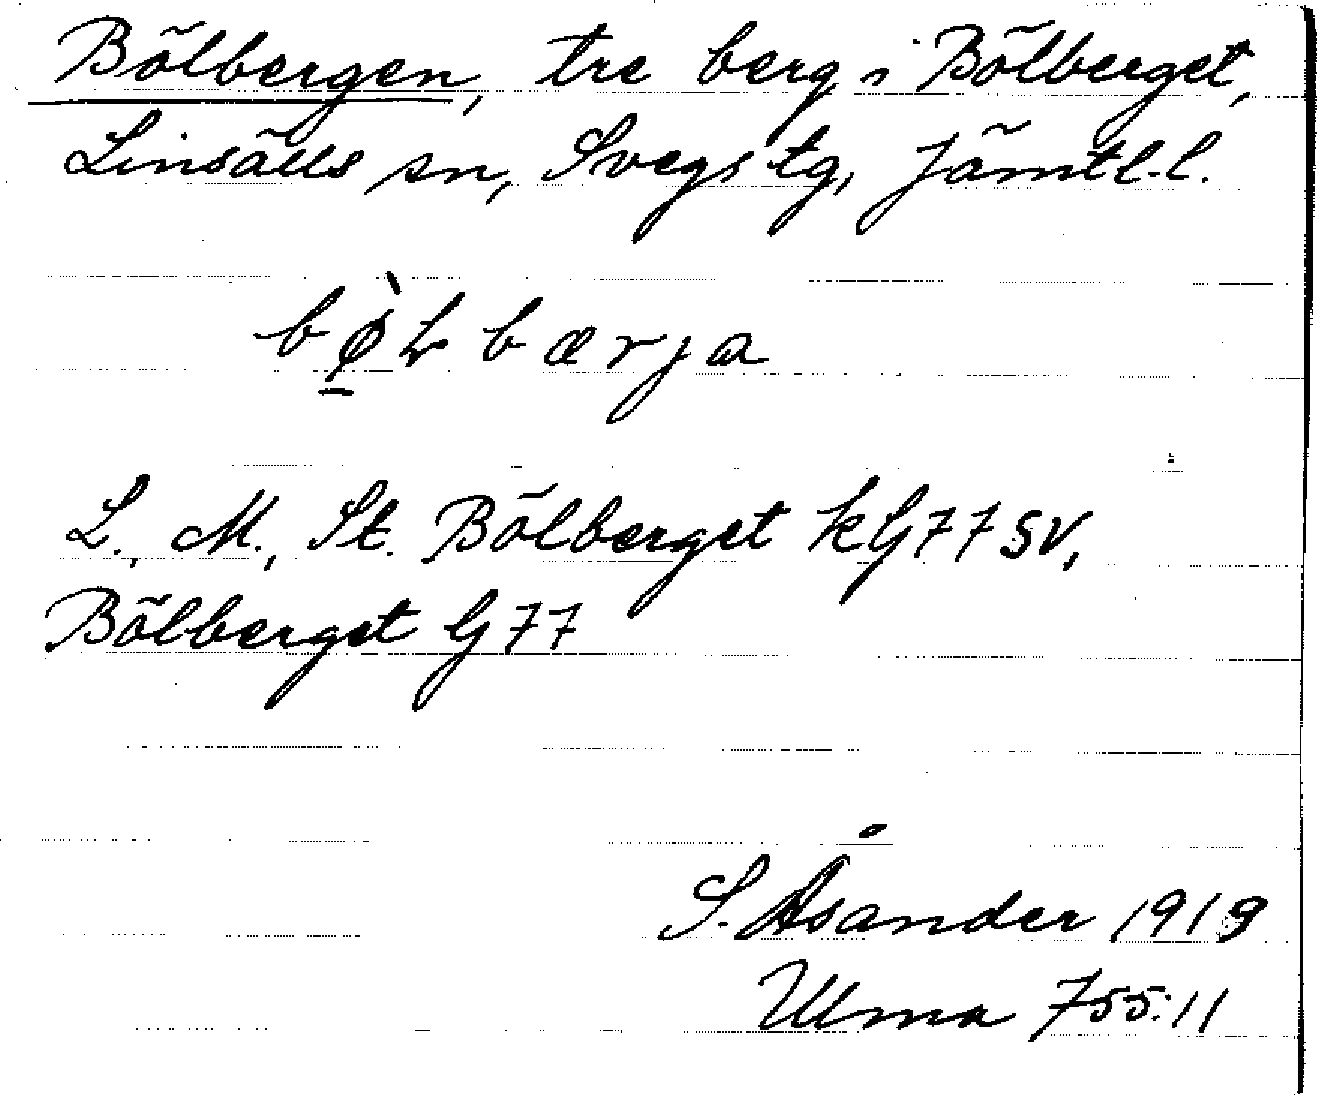 Bölbergen, tre berg i Bölberget,
Linsälls sn, Svegs tg, Jämtl. l.
bø̠̀Lbærja
L., M., St. Bölberget kG77SV,
Bölberget G77
S. Åsander 1919
Ulma 755:11